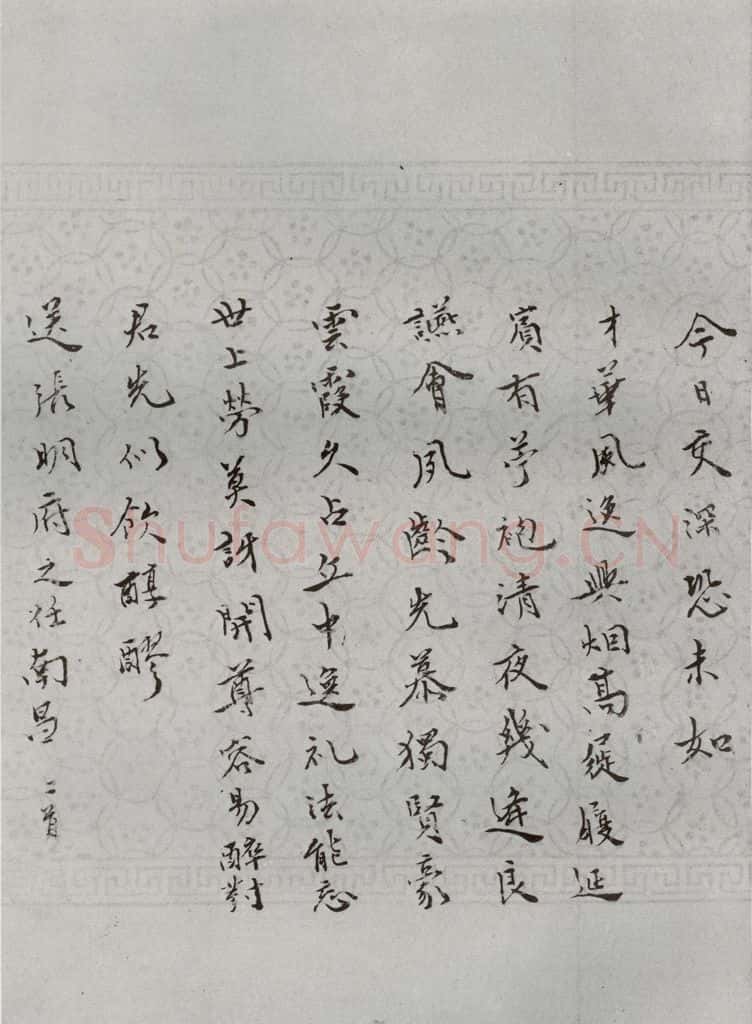 今日交深恐未如
才華風逸興烟高屣履延
賓有苧袍清夜幾逢良
讌會夙齡先慕獨賢豪
雲霞久占丘中逸礼法能忘
世上勞莫訝開尊容易醉對
君先似飲醇醪
送張明府之任南昌 二首
Shufawang.CN